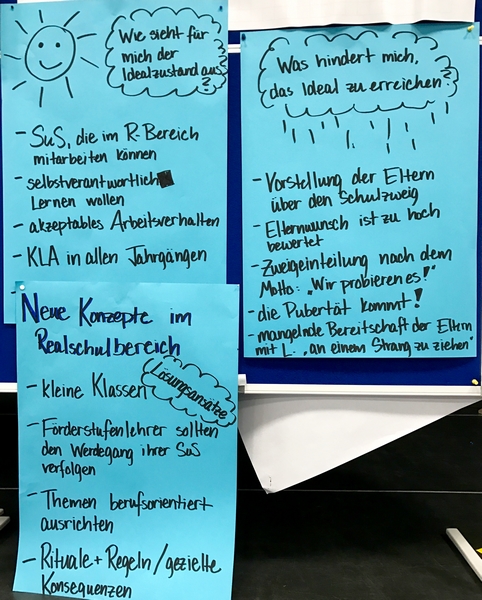 Wie sieht für
mich der
Idealzustand aus
?
- SuS, die im R-Bereich
mitarbeiten können
- selbstverantwortlich
Lernen wollen
- akzeptables Arbeitsverhalten
- KLA in allen Jahrgängen
-
Was hindert mich,
das Ideal zu erreichen?
- Vorstellung der Eltern
über den Schulzweig
- Elternwunsch ist zu hoch
bewertet
- Zweigeinteilung nach dem
Motto: „Wir probieren es!"
- die Pubertät kommt!
- mangelnde Bereitschaft der Eltern
mit L. „an einem Strang zu ziehen"
Neue Konzepte im
Realschulbereich
Lösungsansätze
- kleine Klassen
- Förderstufenlehrer sollten
den Werdegang ihrer SuS
verfolgen
- Themen berufsorientiert
ausrichten
- Rituale + Regeln / gezielte
Konsequenzen